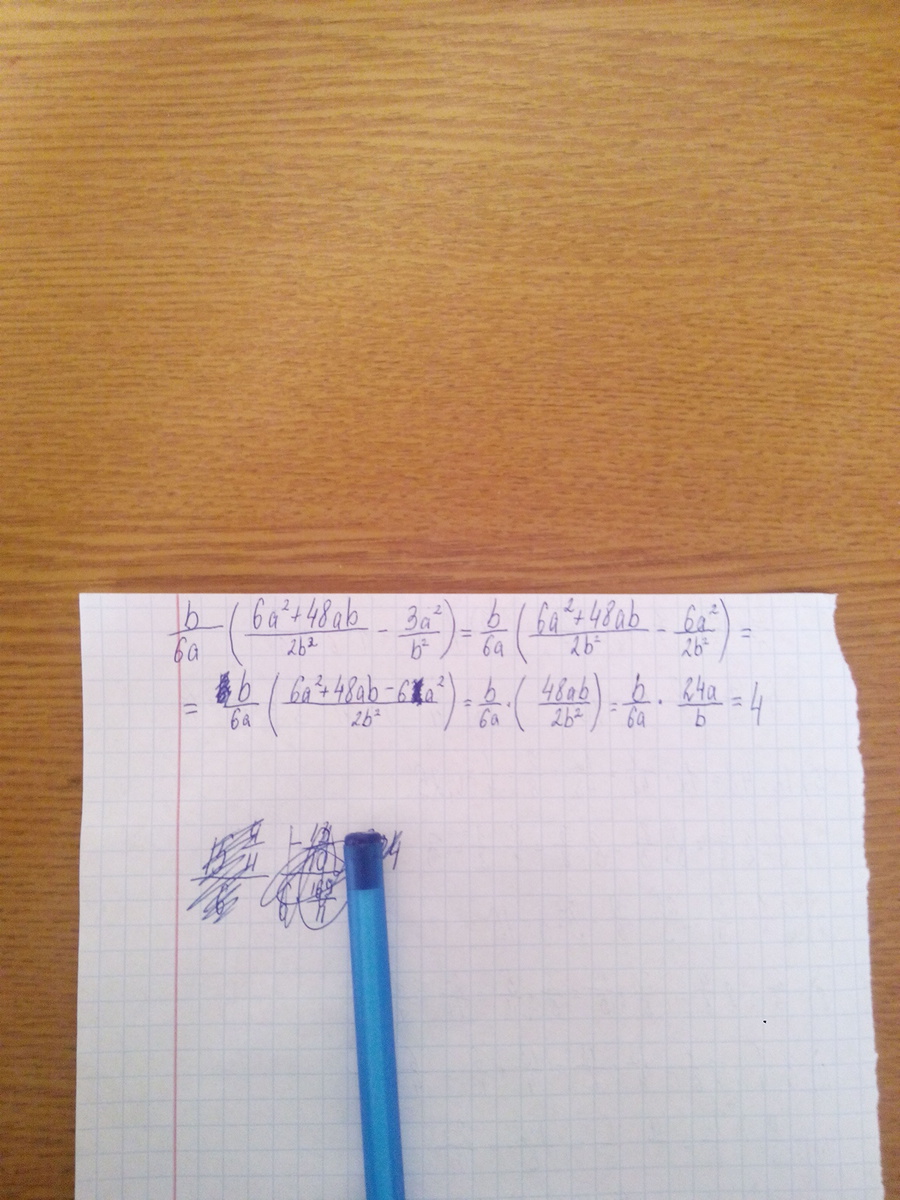 b/6a (6a²+48ab/2b² - 3a²/b²) = b/6a (6a²+48ab/2b² - 6a²/2b²) =
= b/6a (6a²+48ab-6a²/2b²) = b/6a · (48ab/2b²) = b/6a · 24a/b = 4